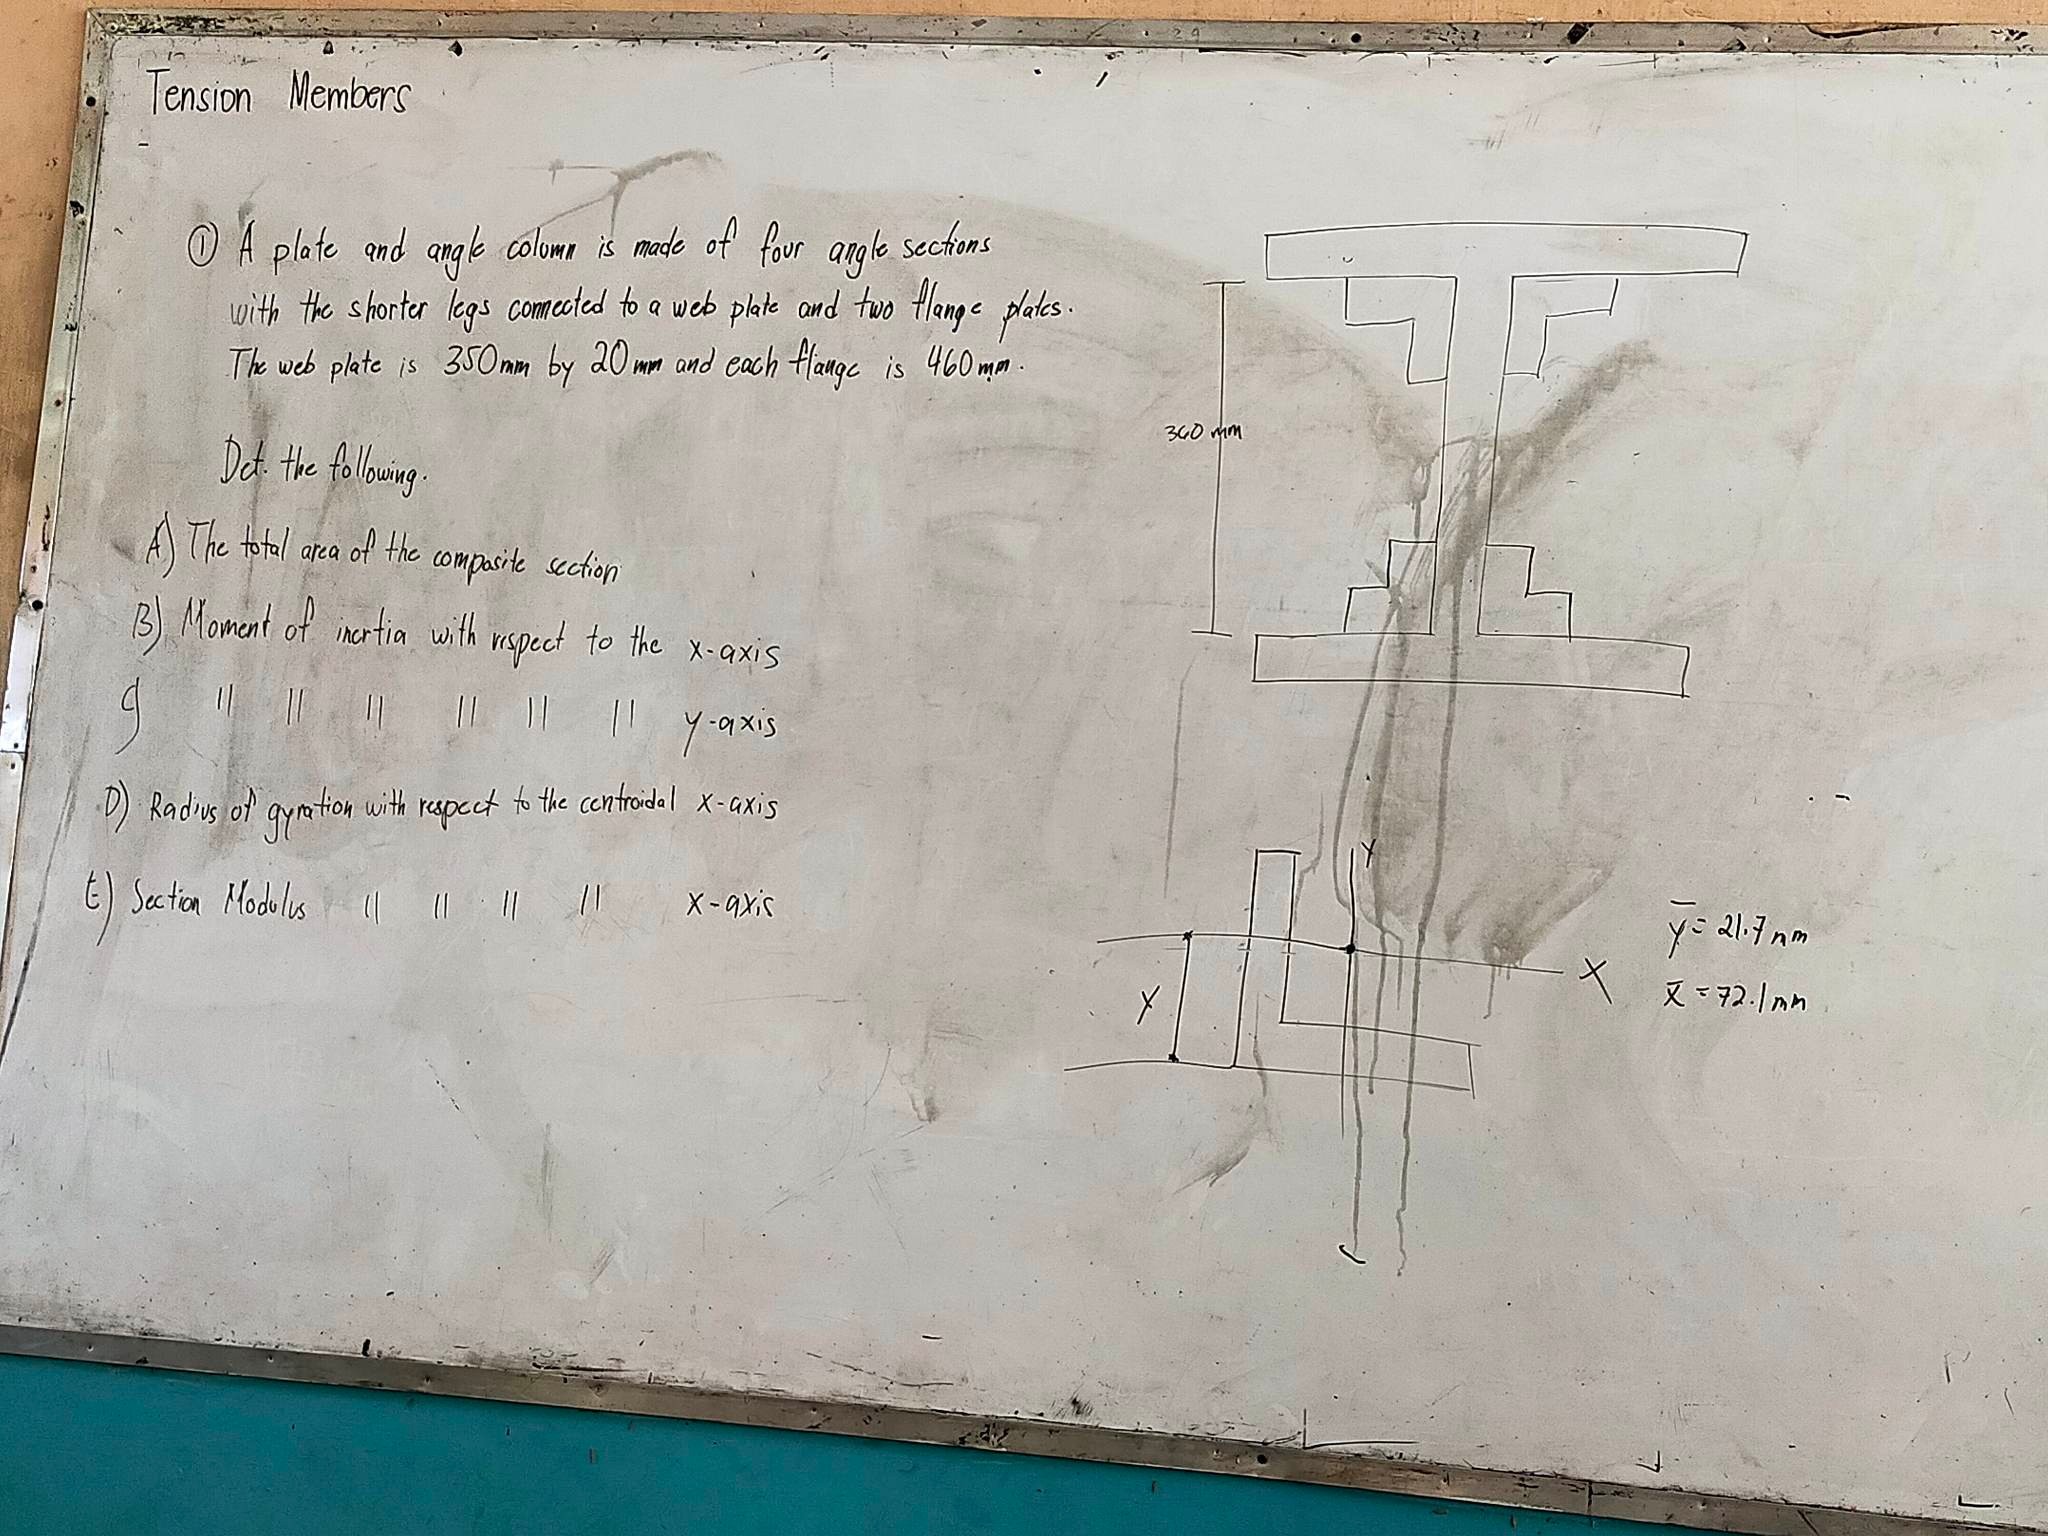 Tension Members
① A plate and angle column is made of four angle sections
with the shorter legs connected to a web plate and two flange plates.
The web plate is 350mm by 20mm and each flange is 460mm.
Det. the following.
A) The total area of the composite section
B) Moment of inertia with respect to the x-axis
C) " " " " " " y-axis
D) Radius of gyration with respect to the centroidal x-axis
E) Section Modulus " " " " x-axis
360 mm
Y
X
y
ȳ = 21.7 mm
x̄ = 72.1 mm